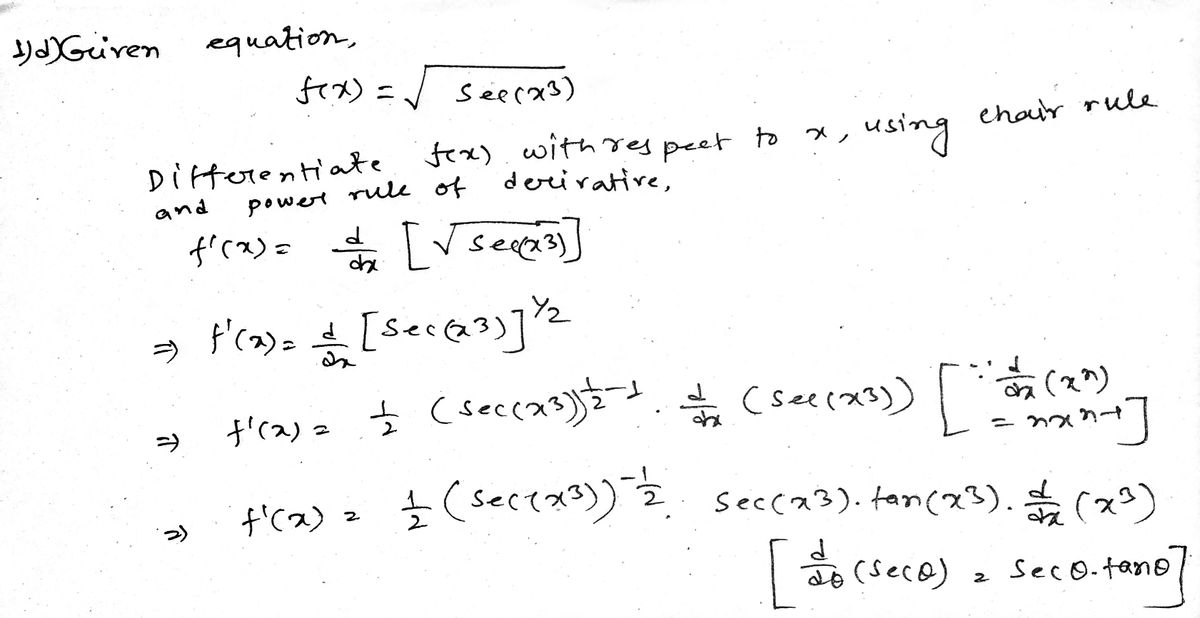 1)d) Given equation,
f(x) = √sec(x3)
Differentiate f(x) with respect to x, using chair rule
and power rule of derivative,
f'(x) = d/dx [√sec(x3)]
⇒ f'(x) = d/dx [sec(x3)]^1/2
⇒ f'(x) = 1/2 (sec(x3))^1/2-1 . d/dx (sec(x3)) [∵ d/dx (x^n) = nx^n-1]
⇒ f'(x) = 1/2 (sec(x3))^-1/2 . sec(x3). tan(x3). d/dx (x3)
[d/dθ (secθ) = secθ. tanθ]